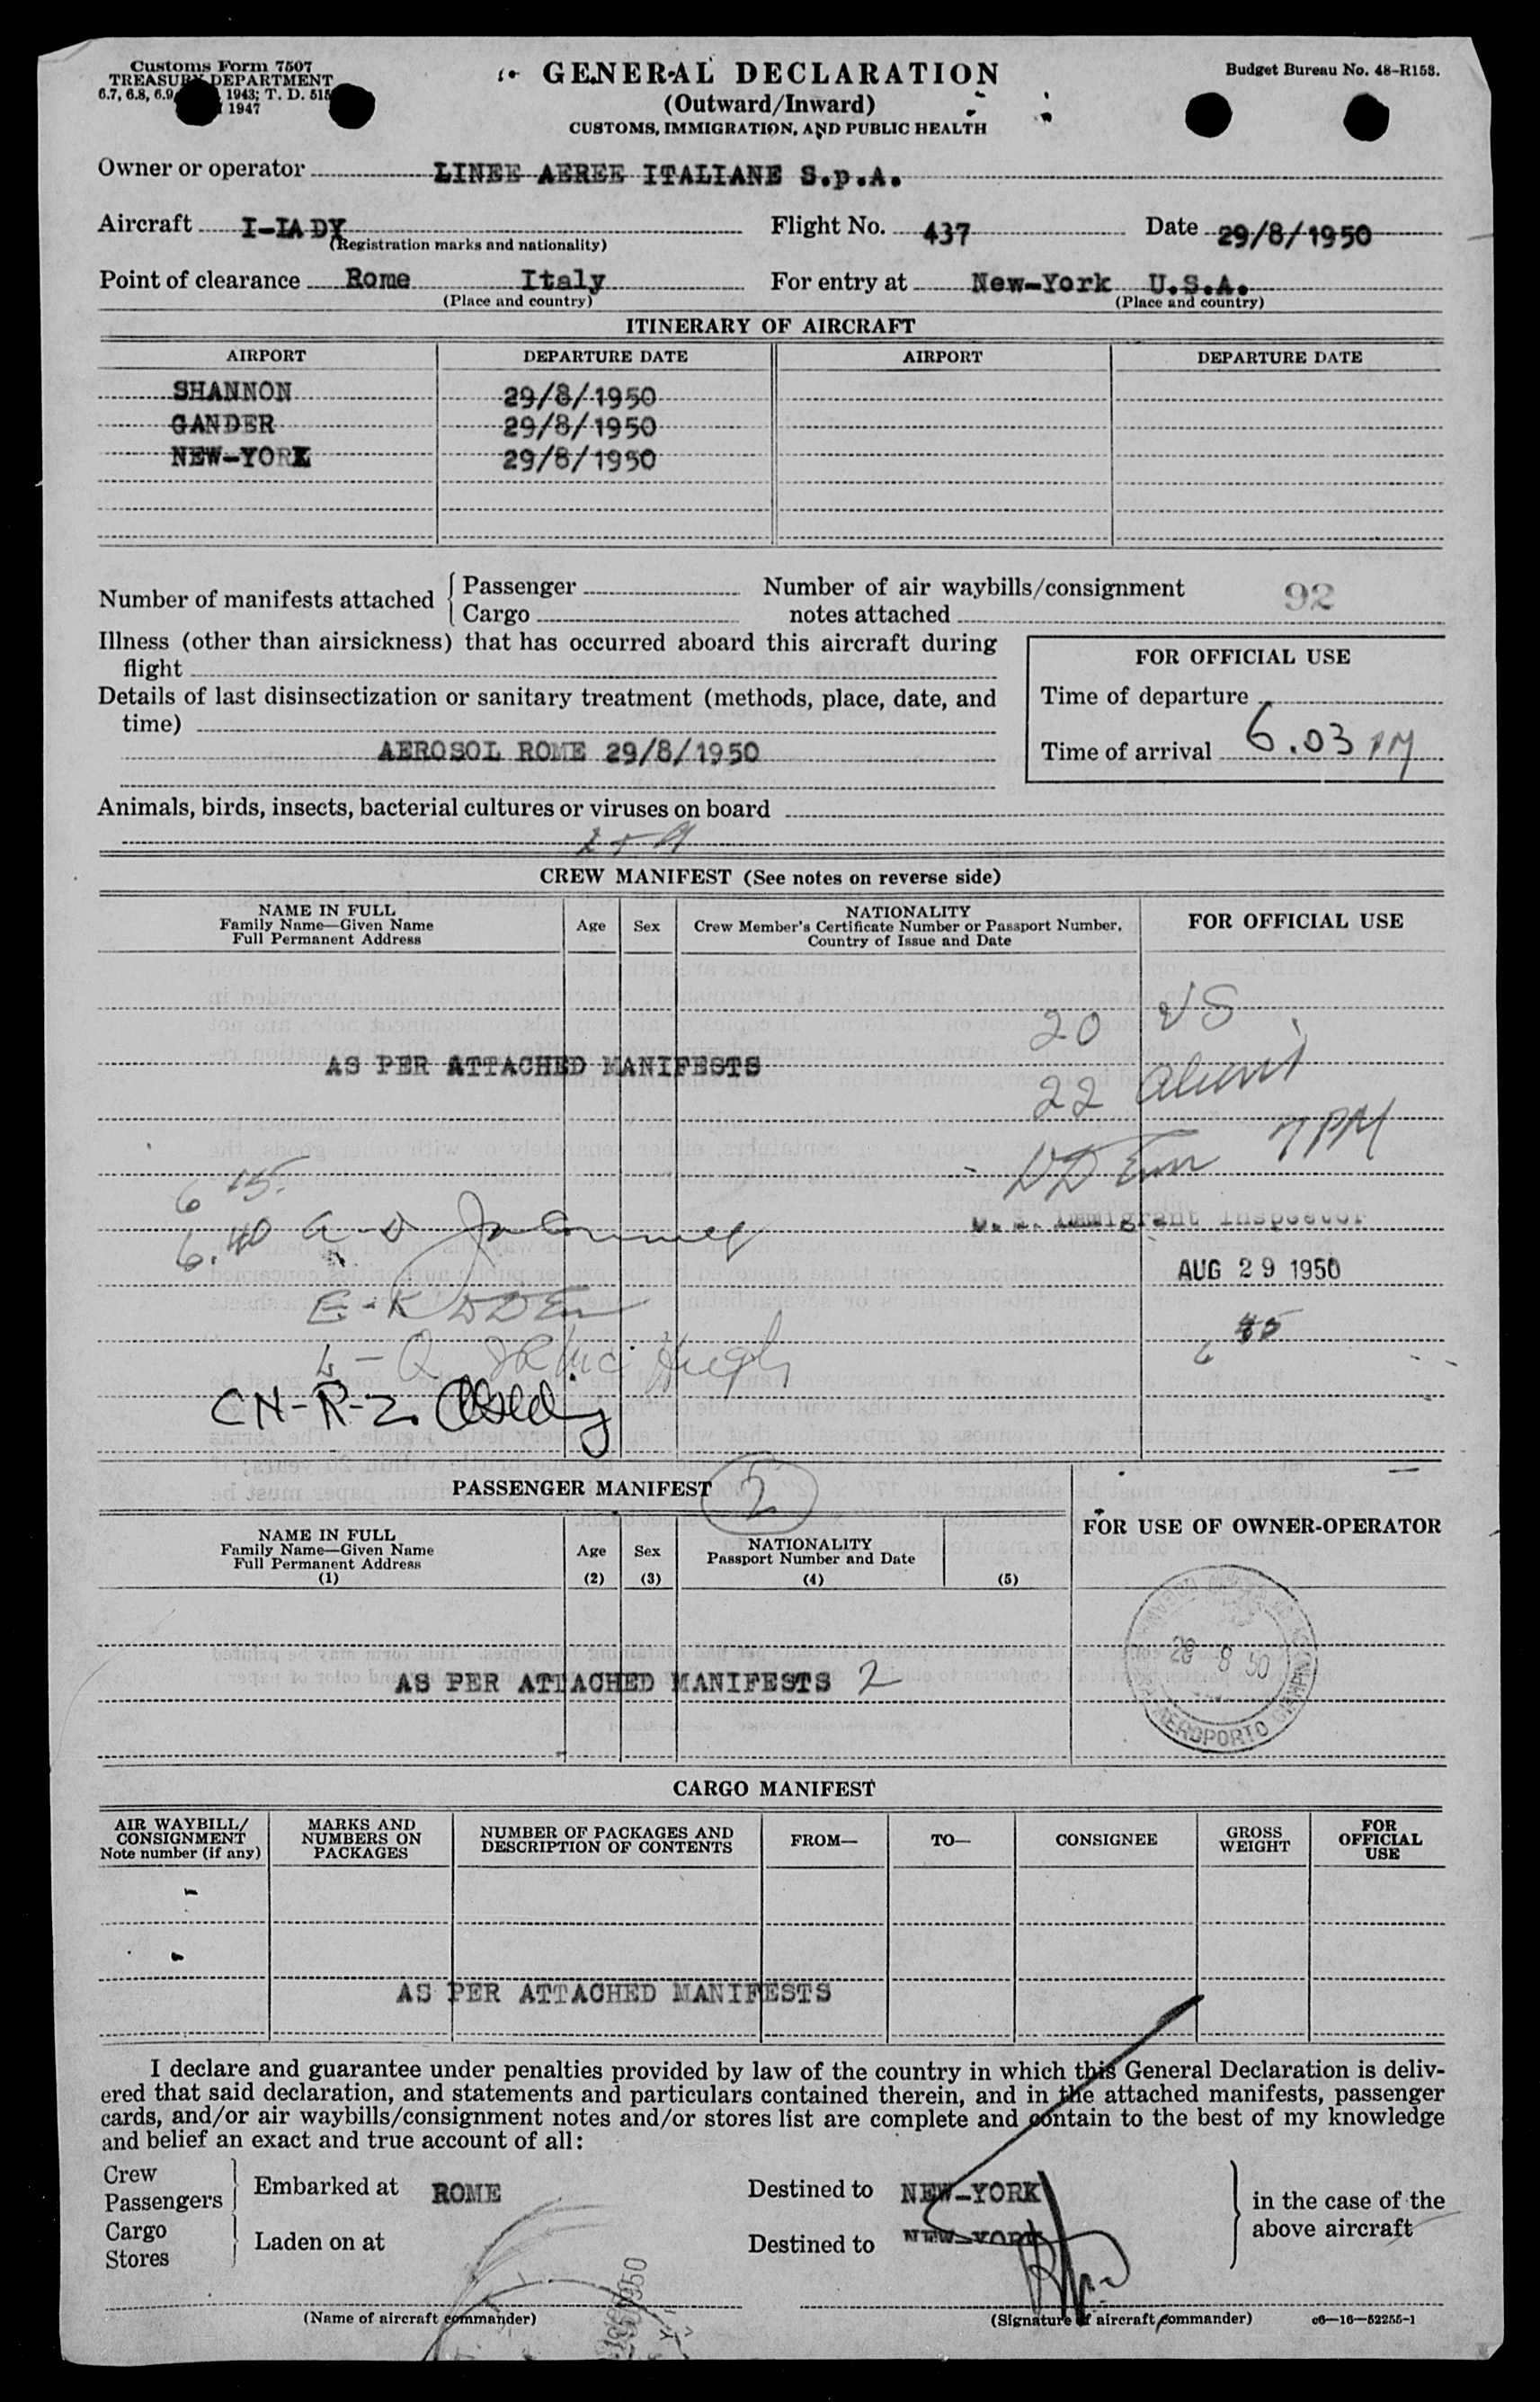 Customs Form 7507
TREASURY DEPARTMENT
6.7, 6.8, 6.9, 1943; T. D. 515
1947
GENERAL DECLARATION
(Outward/Inward)
CUSTOMS, IMMIGRATION, AND PUBLIC HEALTH
Budget Bureau No. 48-R153.
Owner or operator LINEE AEREE ITALIANE S.p.A.
Aircraft I-IADY Flight No. 437 Date 29/8/1950
(Registration marks and nationality)
Point of clearance Rome Italy For entry at New-York U.S.A.
(Place and country) (Place and country)
ITINERARY OF AIRCRAFT
AIRPORT DEPARTURE DATE AIRPORT DEPARTURE DATE
SHANNON 29/8/1950
GANDER 29/8/1950
NEW-YORK 29/8/1950
Number of manifests attached Passenger
Cargo
Number of air waybills/consignment
notes attached
92
Illness (other than airsickness) that has occurred aboard this aircraft during
flight
Details of last disinsectization or sanitary treatment (methods, place, date, and
time)
AEROSOL ROME 29/8/1950
FOR OFFICIAL USE
Time of departure
Time of arrival 6.03 PM
Animals, birds, insects, bacterial cultures or viruses on board
CREW MANIFEST (See notes on reverse side)
NAME IN FULL
Family Name—Given Name
Full Permanent Address
Age
Sex
NATIONALITY
Crew Member's Certificate Number or Passport Number,
Country of Issue and Date
FOR OFFICIAL USE
20 US
AS PER ATTACHED MANIFESTS
22 Aliens
7 PM
6 15
U. S. Immigrant Inspector
6.40
AUG 29 1950
CN-R-2.
PASSENGER MANIFEST 2
NAME IN FULL
Family Name—Given Name
Full Permanent Address
(1)
Age
(2)
Sex
(3)
NATIONALITY
Passport Number and Date
(4)
(5)
FOR USE OF OWNER-OPERATOR
29 8 50
AEROPORTO
AS PER ATTACHED MANIFESTS 2
CARGO MANIFEST
AIR WAYBILL/
CONSIGNMENT
Note number (if any)
MARKS AND
NUMBERS ON
PACKAGES
NUMBER OF PACKAGES AND
DESCRIPTION OF CONTENTS
FROM—
TO—
CONSIGNEE
GROSS
WEIGHT
FOR
OFFICIAL
USE
AS PER ATTACHED MANIFESTS
I declare and guarantee under penalties provided by law of the country in which this General Declaration is deliv-
ered that said declaration, and statements and particulars contained therein, and in the attached manifests, passenger
cards, and/or air waybills/consignment notes and/or stores list are complete and contain to the best of my knowledge
and belief an exact and true account of all:
Crew
Passengers
Embarked at ROME
Destined to NEW-YORK
Cargo
Stores
Laden on at
Destined to NEW-YORK
in the case of the
above aircraft
(Name of aircraft commander)
(Signature of aircraft commander)
c6—16—52255-1